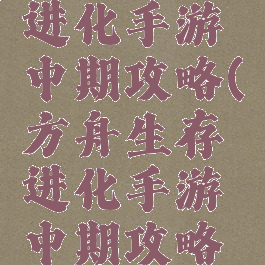 进化手游
中期攻略(
方舟生存
进化手游
中期攻略